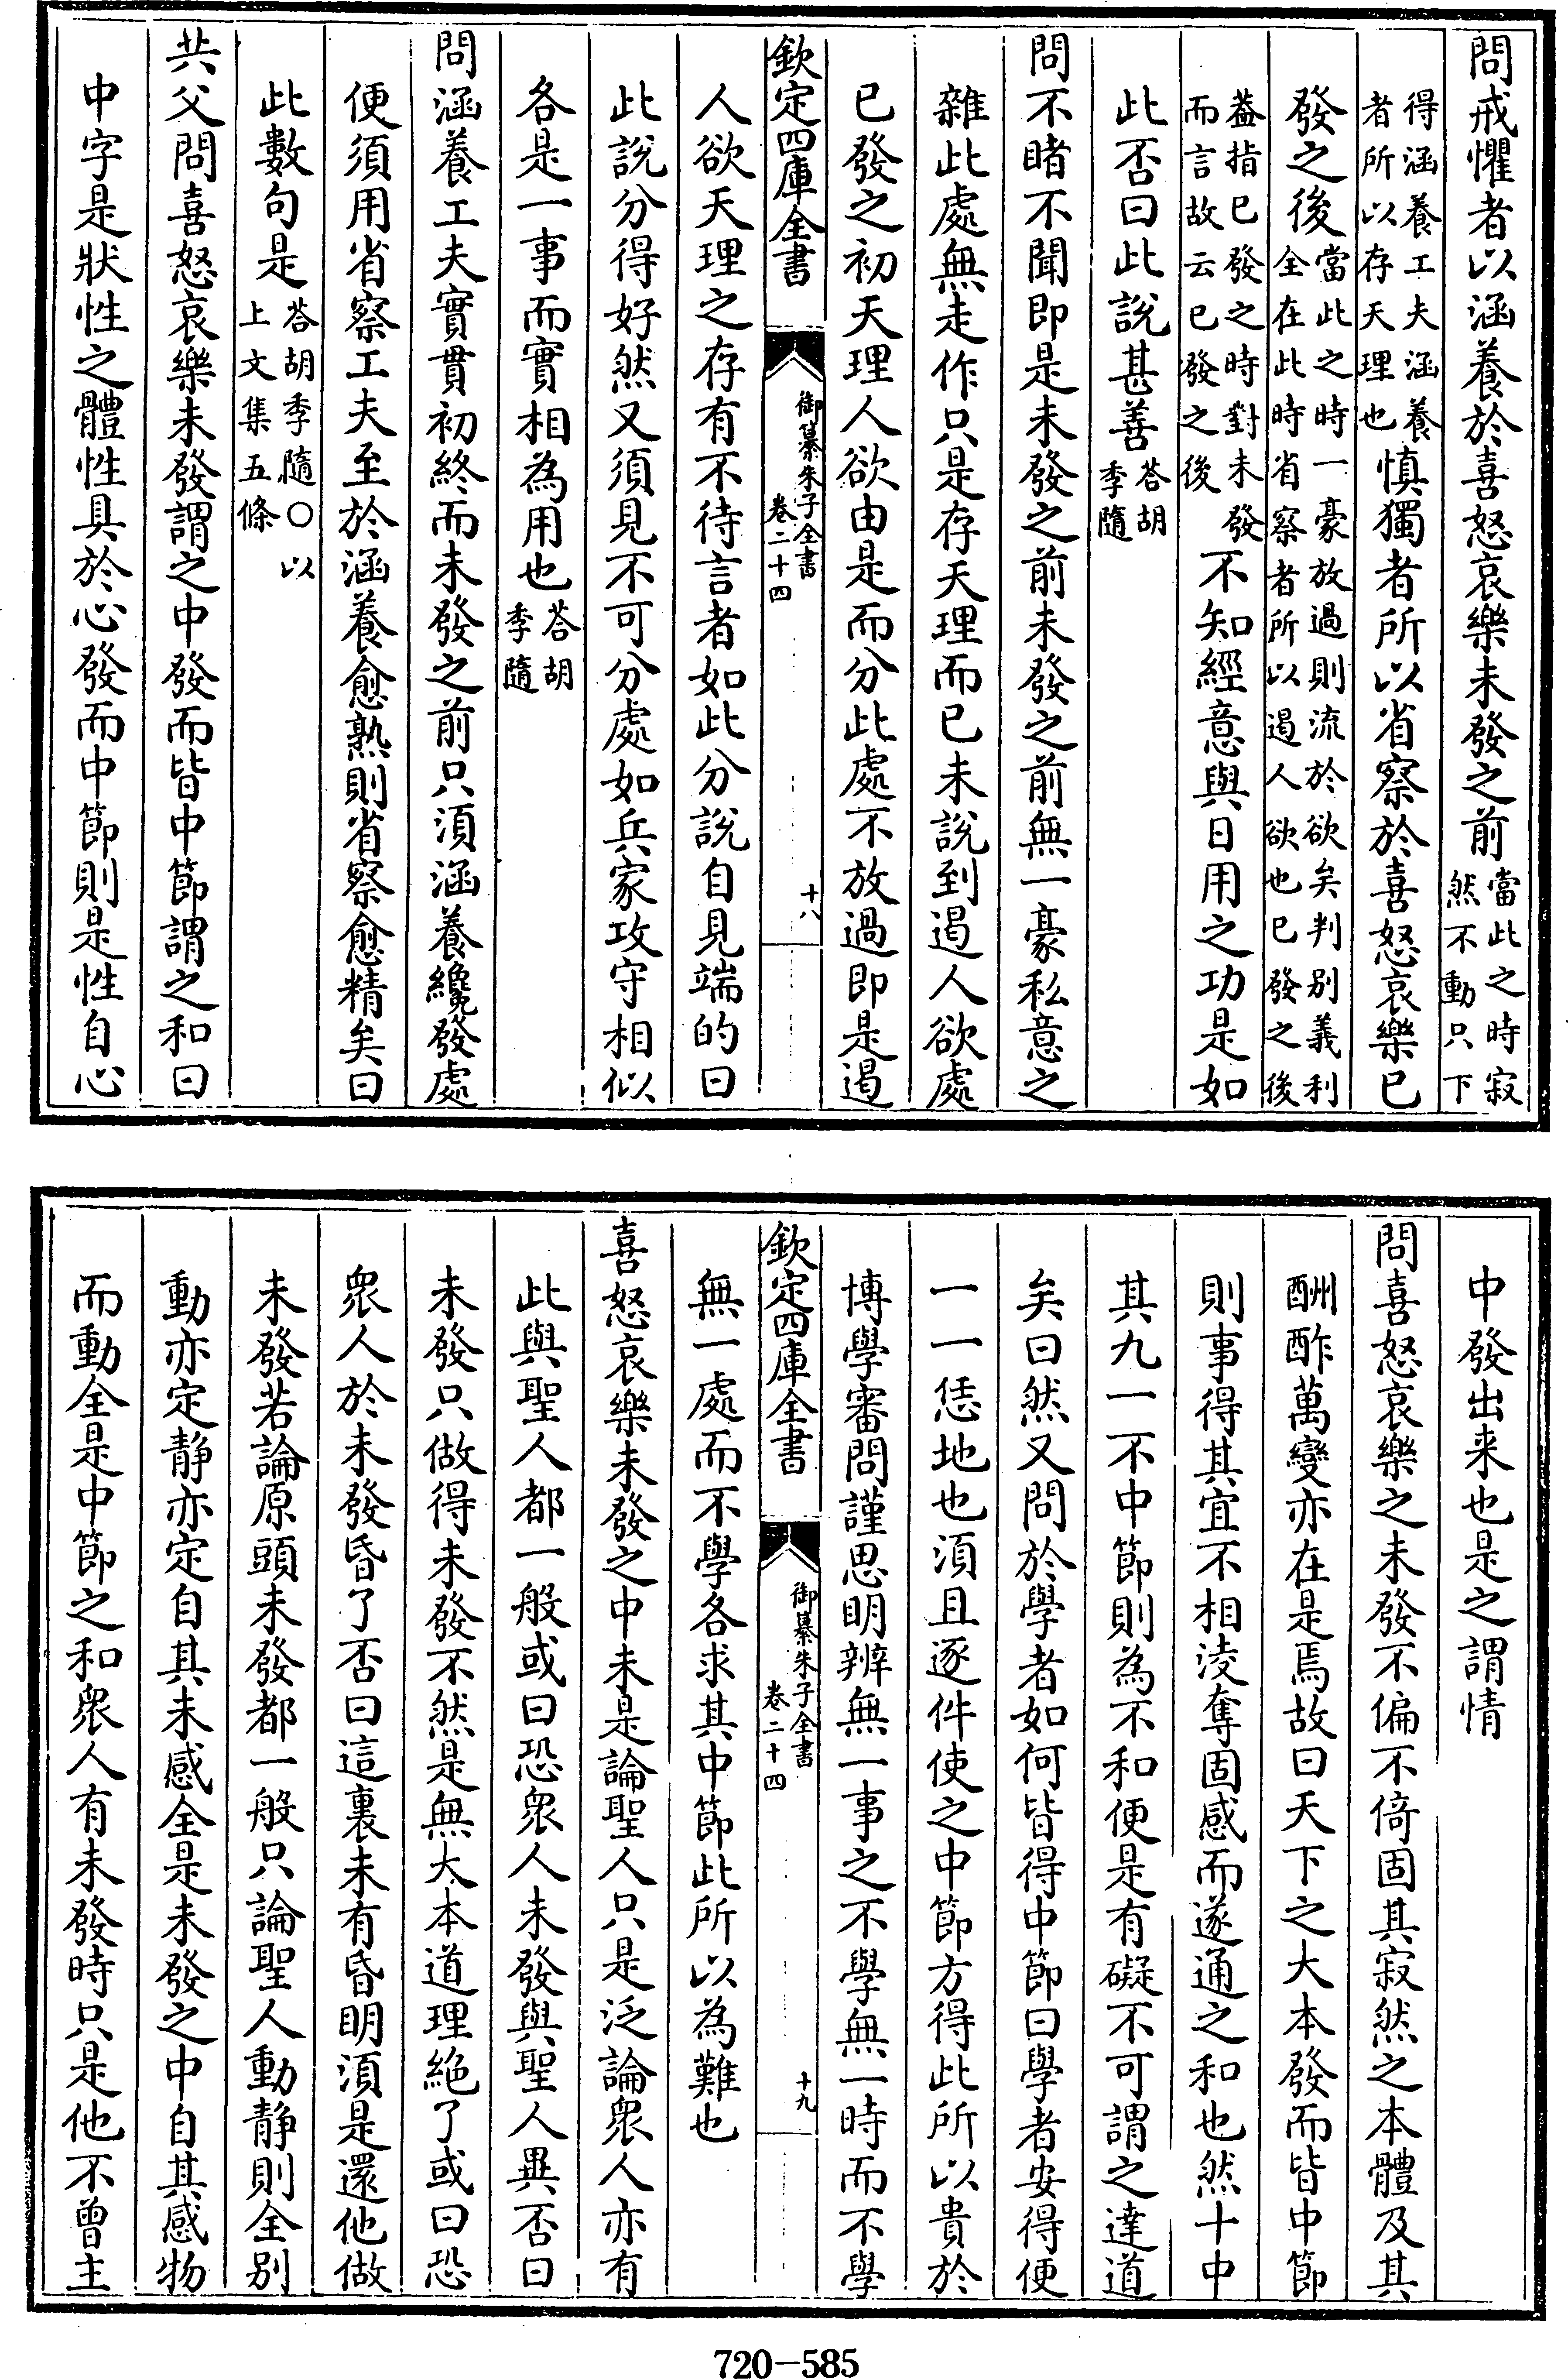 問戒懼者以涵養於喜怒哀樂未發之前當此之時寂然不動只下
得涵養工夫涵養者所以存天理也慎獨者所以省察於喜怒哀樂已
發之後當此之時一豪放過則流於欲矣判别義利全在此時省察者所以遏人欲也已發之後
葢指已發之時對未發而言故云已發之後不知經意與日用之功是如
此否曰此說甚善荅胡季隨
問不睹不聞即是未發之前未發之前無一豪私意之
雜此處無走作只是存天理而已未說到遏人欲處
已發之初天理人欲由是而分此處不放過即是遏
欽定四庫全書 御纂朱子全書 卷二十四 十八
人欲天理之存有不待言者如此分說自見端的曰
此說分得好然又須見不可分處如兵家攻守相似
各是一事而實相為用也荅胡季隨
問涵養工夫實貫初終而未發之前只須涵養纔發處
便須用省察工夫至於涵養愈熟則省察愈精矣曰
此數句是荅胡季隨○以上文集五條
共父問喜怒哀樂未發謂之中發而皆中節謂之和曰
中字是狀性之體性具於心發而中節則是性自心
中發出来也是之謂情
問喜怒哀樂之未發不偏不倚固其寂然之本體及其
酬酢萬變亦在是焉故曰天下之大本發而皆中節
則事得其宜不相淩奪固感而遂通之和也然十中
其九一不中節則為不和便是有礙不可謂之達道
矣曰然又問於學者如何皆得中節曰學者安得便
一一恁地也須且逐件使之中節方得此所以貴於
博學審問謹思明辨無一事之不學無一時而不學
欽定四庫全書 御纂朱子全書 卷二十四 十九
無一處而不學各求其中節此所以為難也
喜怒哀樂未發之中未是論聖人只是泛論衆人亦有
此與聖人都一般或曰恐衆人未發與聖人異否曰
未發只做得未發不然是無大本道理絶了或曰恐
衆人於未發昏了否曰這裏未有昏明須是還他做
未發若論原頭未發都一般只論聖人動静則全别
動亦定静亦定自其未感全是未發之中自其感物
而動全是中節之和衆人有未發時只是他不曽主
720-585